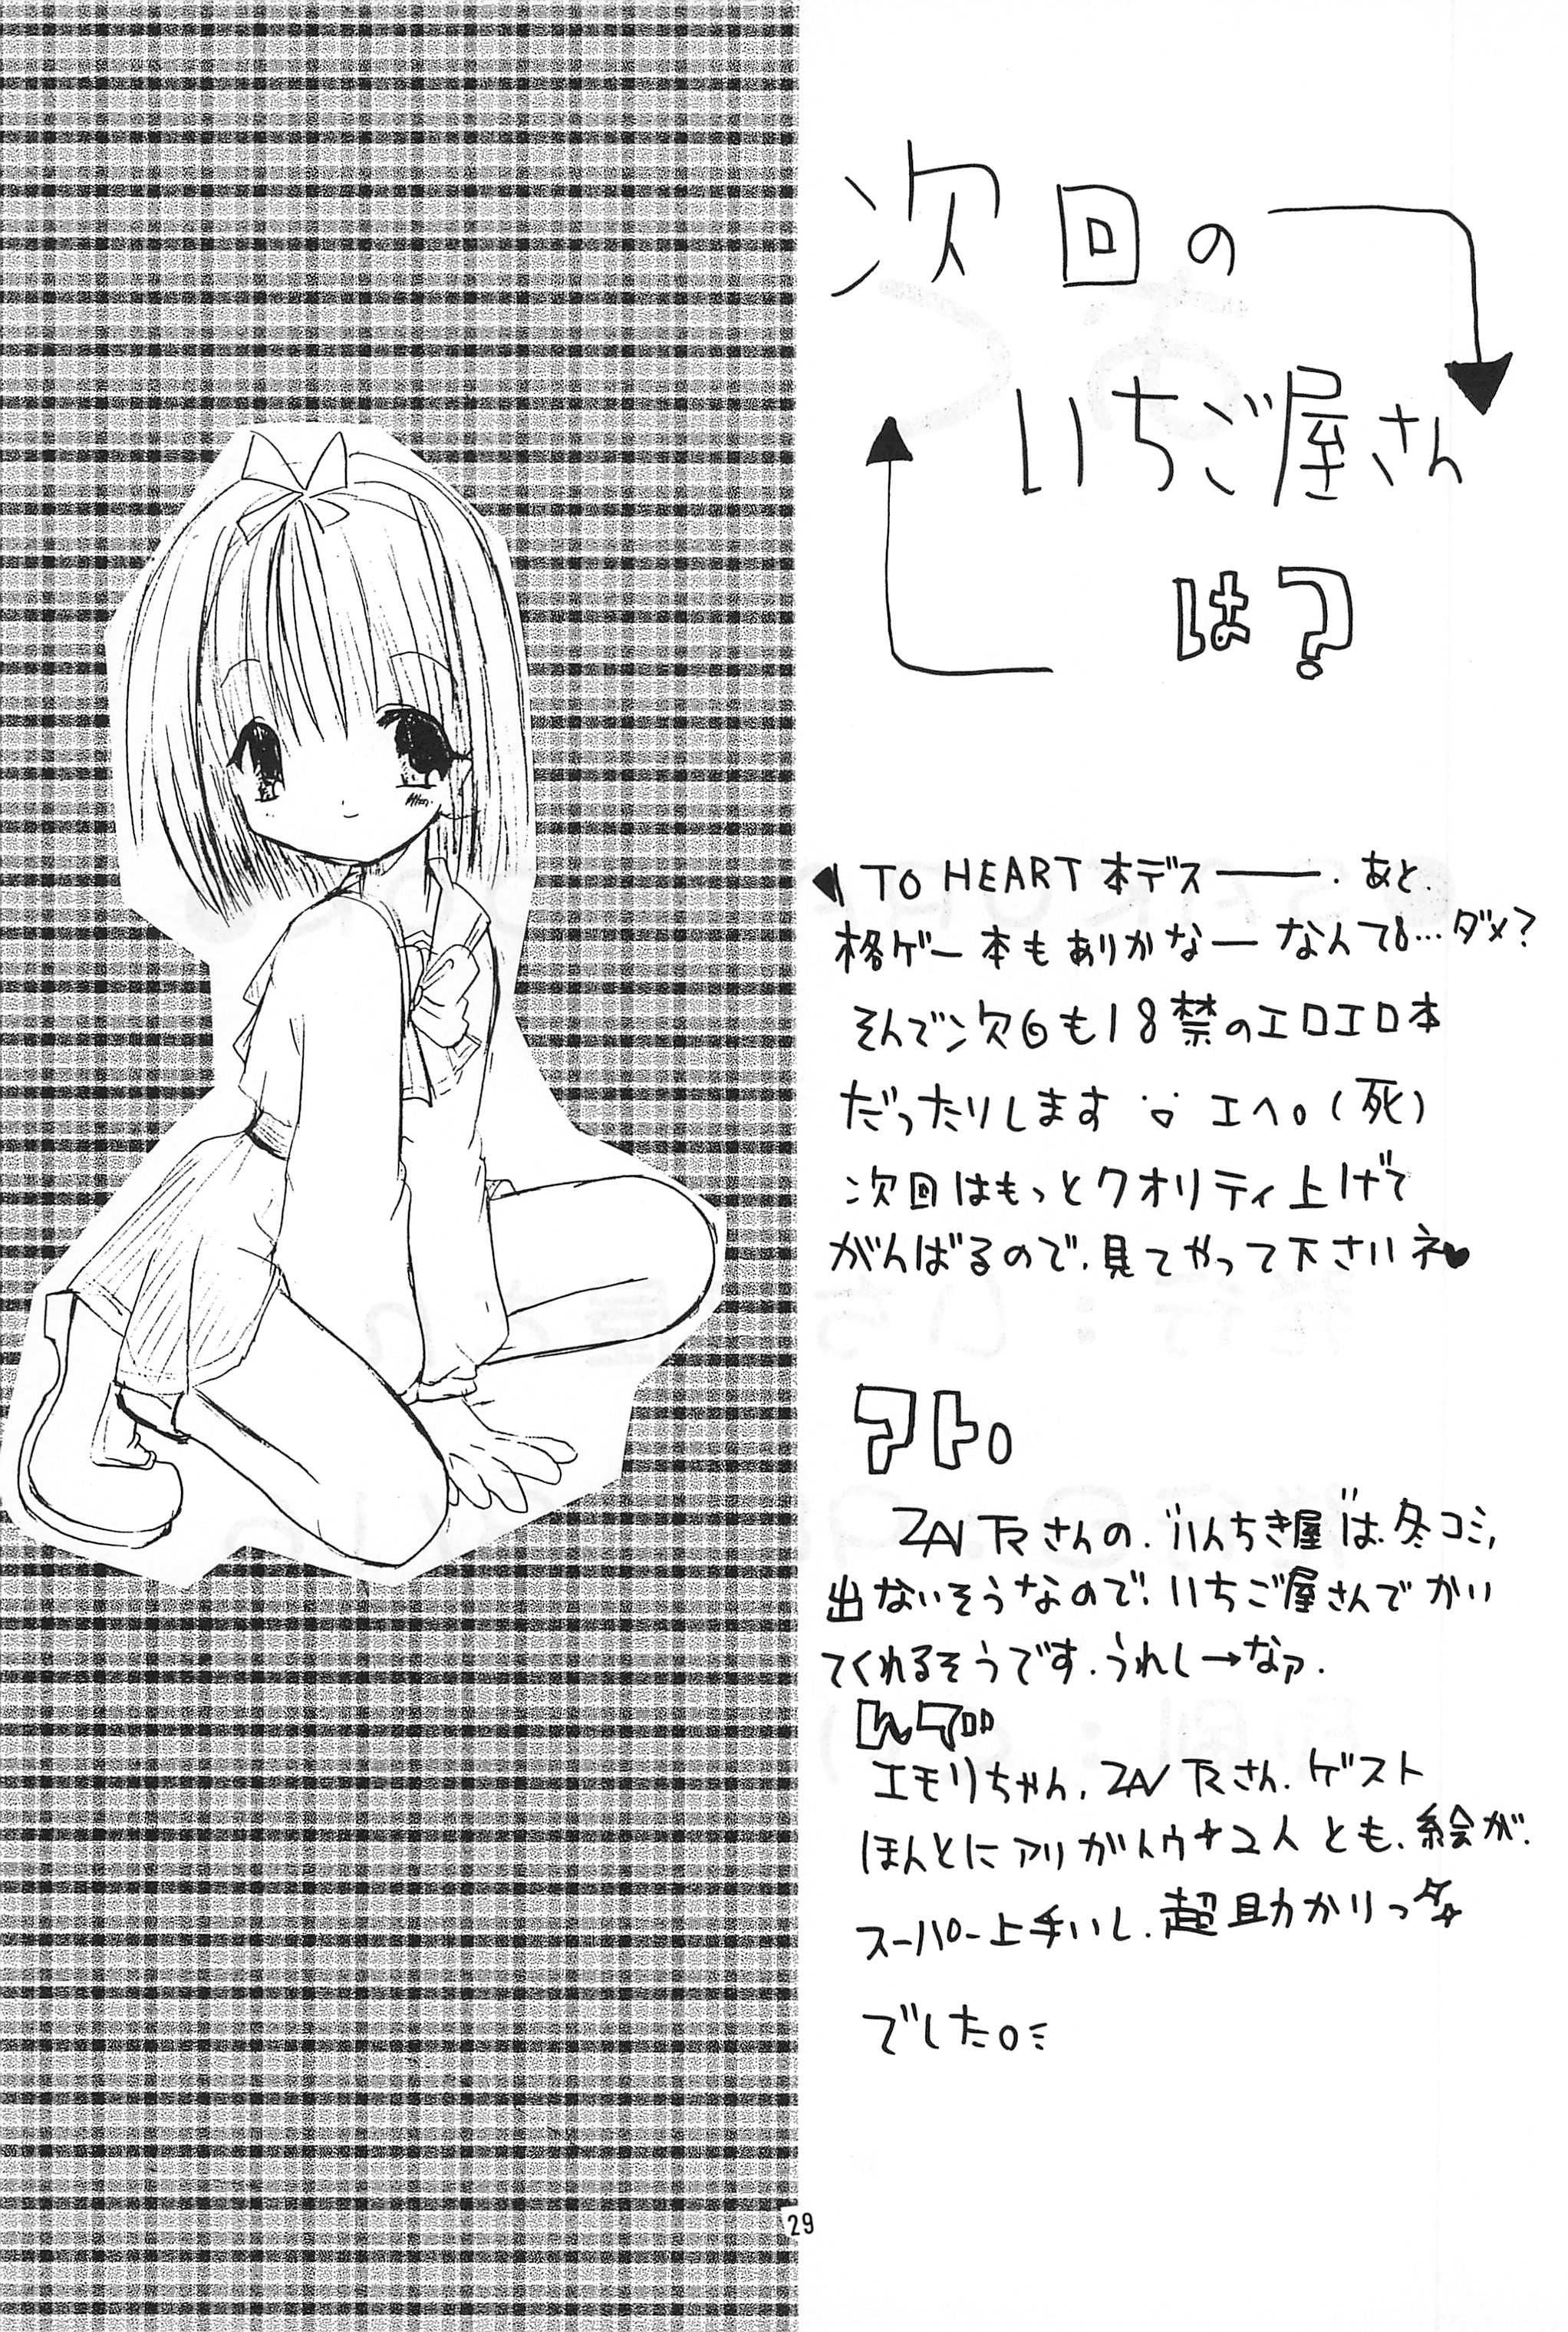 次回の
いちご屋さん
は?
TO HEART 本デス――. あと.
格ゲー本もありかなー なんて8… ダメ?
そんで次回も18禁のエロエロ本
だったりします エへ。(死)
次回はもっとクオリティ上げて
がんばるので、見てやって下さいネ♥
アト。
ZAN 下さんの、“いんちき屋”は冬コミ,
出ないそうなので、いちご屋さんでかい
てくれるそうです.うれし→なァ.
エモリちゃん、ZAN 下さん、ゲスト
ほんとにアリガトウ 2人とも、絵が、
スーパー上手いし、超助かりっ
でした。
29